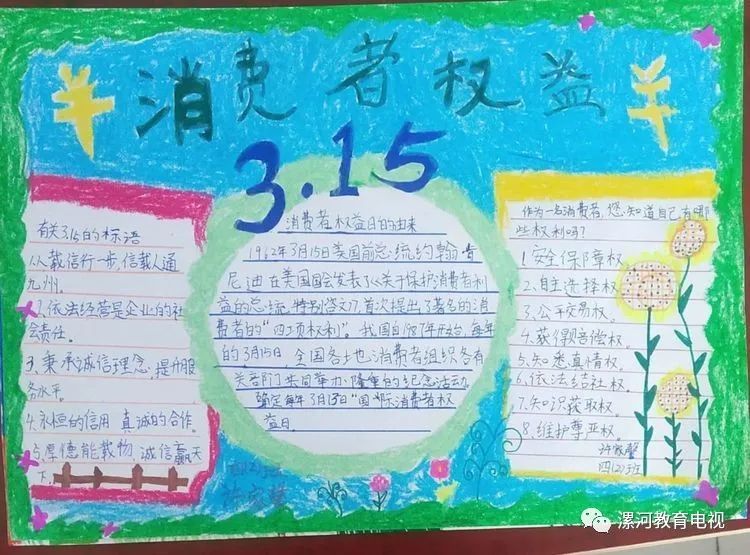 消费者权益
3.15
有关3.15的标语
1.人载信行一步,信载人通
九州。
2.依法经营是企业的社
会责任。
3.秉承诚信理念,提升服
务水平。
4.永恒的信用 真诚的合作。
5.厚德能载物 诚信赢天
下。
消费者权益日的由来
1962年3月15日美国前总统约翰·肯
尼迪在美国国会发表了《关于保护消费者利
益的总统特别咨文》,首次提出了著名的消
费者的"四项权利"。我国自1987年开始,每年
的3月15日,全国各地消费者组织各有
关部门共同举办隆重的纪念活动
确定每年3月15日"国"际消费者权
益日。
作为一名消费者,您知道自己有哪
些权利吗?
1.安全保障权
2.自主选择权
3.公平交易权。
4.获得赔偿权。
5.知悉真情权。
6.依法结社权。
7.知识获取权。
8.维护尊严权。
四(2)班
四(2)班
漯河教育电视